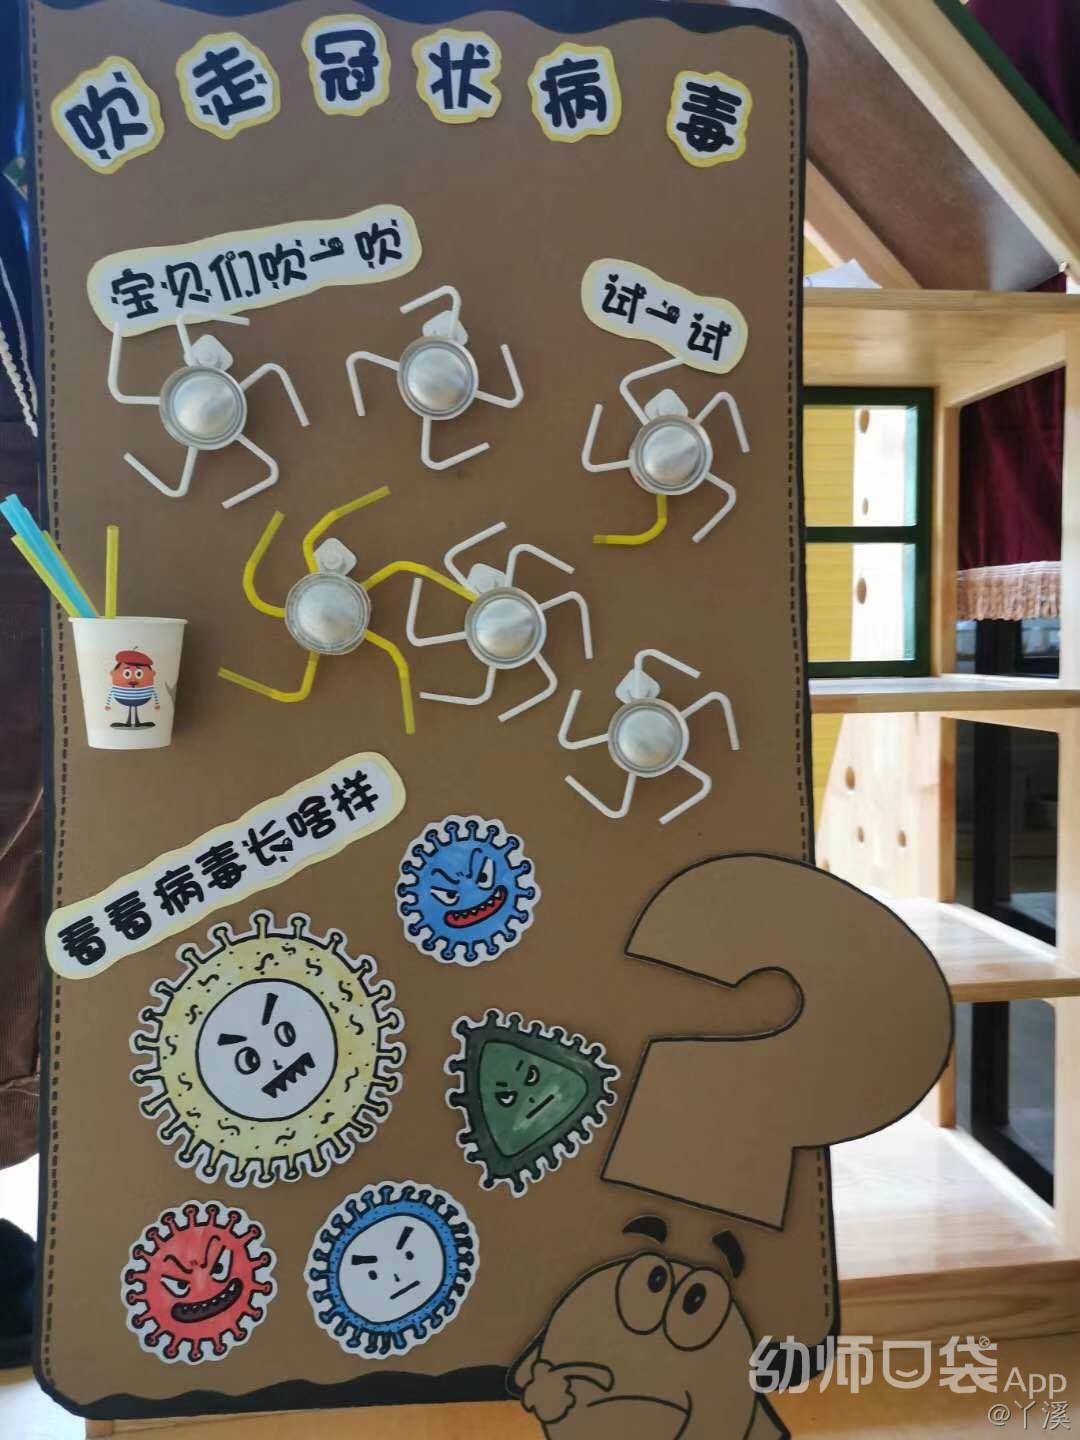 吹走冠状病毒
宝贝们吹一吹
试一试
看看病毒长啥样
幼师口袋App
@丫溪